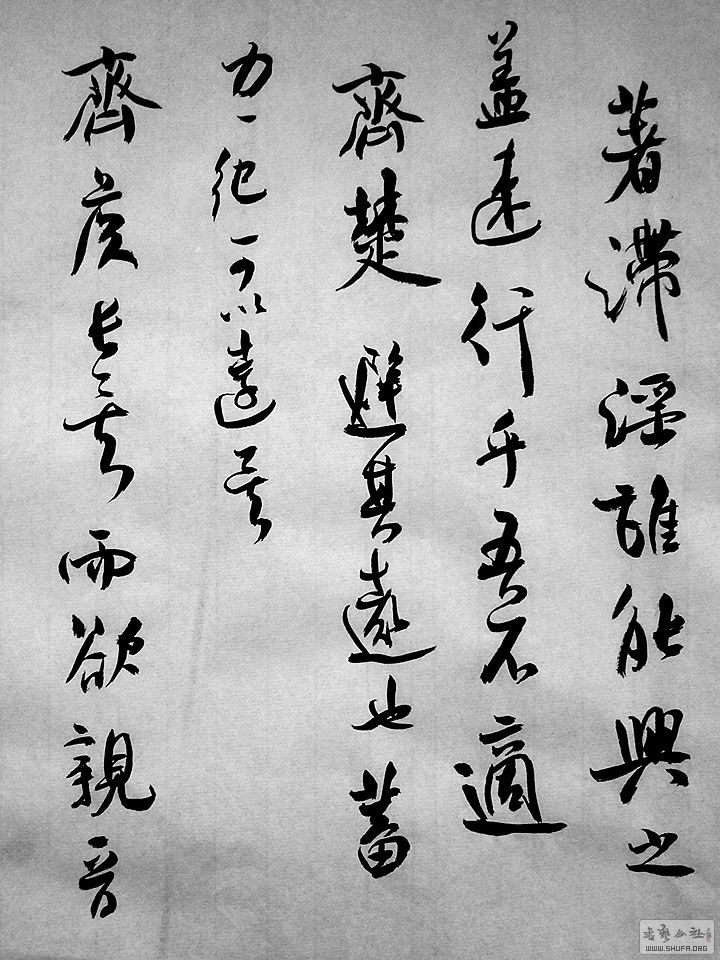 著滯淫誰能興之
盖速行乎吾不適
齊楚避其遠也蓄
力一紀可以遠矣
齊侯長矣而欲親晋
书艺公社
WWW.SHUFA.ORG